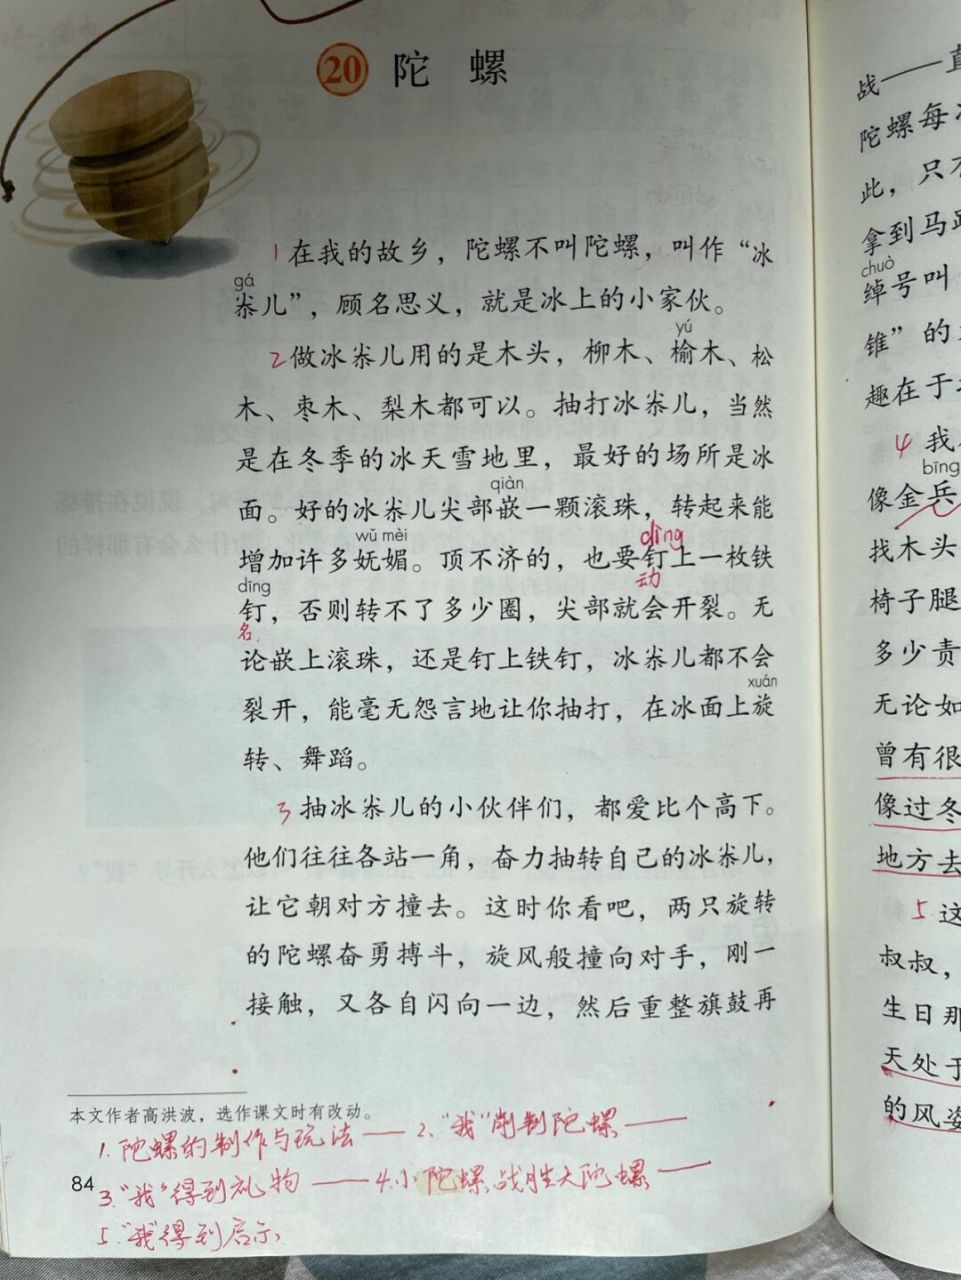 20 陀 螺
1 在我的故乡，陀螺不叫陀螺，叫作“冰
gá
尜儿”，顾名思义，就是冰上的小家伙。
yú
2 做冰尜儿用的是木头，柳木、榆木、松
木、枣木、梨木都可以。抽打冰尜儿，当然
是在冬季的冰天雪地里，最好的场所是冰
qiàn
面。好的冰尜儿尖部嵌一颗滚珠，转起来能
wǔ mèi dìng
增加许多妩媚。顶不济的，也要钉上一枚铁
dīng 动
钉，否则转不了多少圈，尖部就会开裂。无
名
论嵌上滚珠，还是钉上铁钉，冰尜儿都不会
xuán
裂开，能毫无怨言地让你抽打，在冰面上旋
转、舞蹈。
3 抽冰尜儿的小伙伴们，都爱比个高下。
他们往往各站一角，奋力抽转自己的冰尜儿，
让它朝对方撞去。这时你看吧，两只旋转
的陀螺奋勇搏斗，旋风般撞向对手，刚一
接触，又各自闪向一边，然后重整旗鼓再
本文作者高洪波，选作课文时有改动。
1. 陀螺的制作与玩法—— 2、“我”削制陀螺——
84
3、“我”得到礼物——4.小陀螺战胜大陀螺——
5.“我”得到启示、
战——直
陀螺每
此，只
拿到马
chuò
绰号叫
锥”的
趣在于
4 我
bīng
像金兵
找木头
椅子腿
多少责
无论如
曾有很
像过冬
地方去
5 这
叔叔，
生日那
天处于
的风姿